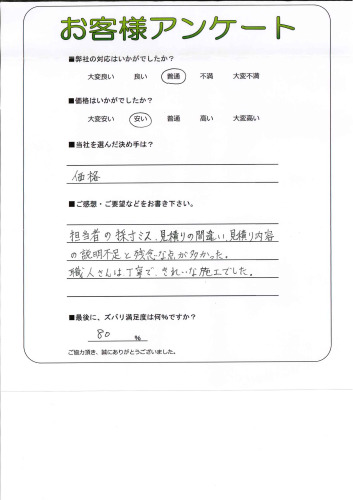 お客様アンケート
■弊社の対応はいかがでしたか？
大変良い 良い 普通 不満 大変不満
■価格はいかがでしたか？
大変安い 安い 普通 高い 大変高い
■当社を選んだ決め手は？
価格
■ご感想・ご要望などをお書き下さい。
担当者の採寸ミス、見積りの間違い、見積り内容
の説明不足と残念な点が多かった。
職人さんは丁寧で、きれいな施工でした。
■最後に、ズバリ満足度は何％ですか？
80 ％
ご協力頂き、誠にありがとうございました。